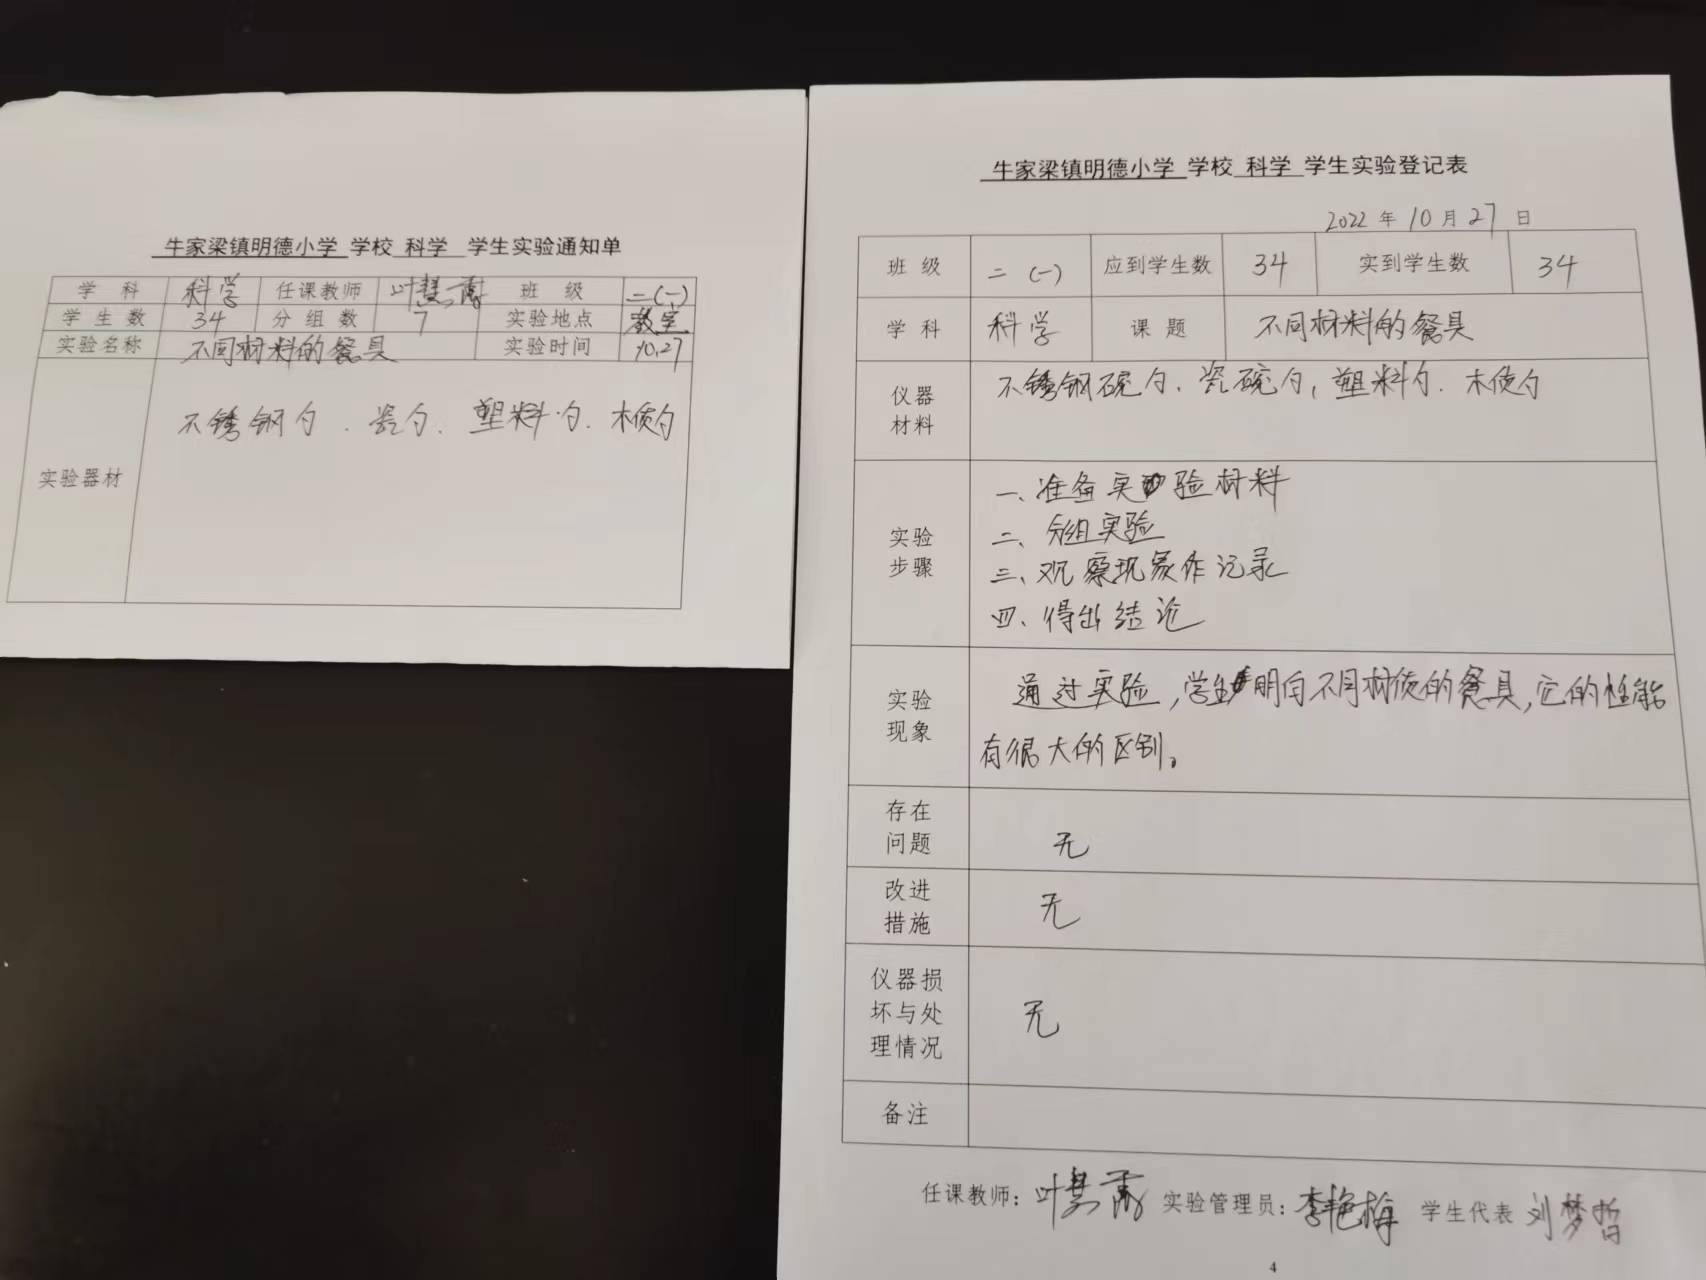 牛家梁镇明德小学 学校 科学 学生实验通知单
学科 科学 任课教师 叶慧 班级 二(一)
学生数 34 分组数 7 实验地点 教室
实验名称 不同材料的餐具 实验时间 10.27
实验器材 不锈钢勺、瓷勺、塑料勺、木质勺
牛家梁镇明德小学 学校 科学 学生实验登记表
2022年10月27日
班级 二(一) 应到学生数 34 实到学生数 34
学科 科学 课题 不同材料的餐具
仪器材料 不锈钢碗勺、瓷碗勺,塑料勺、木质勺
实验步骤
一、准备实验材料
二、分组实验
三、观察现象作记录
四、得出结论
实验现象
通过实验,学生明白不同材质的餐具,它的性能
有很大的区别。
存在问题 无
改进措施 无
仪器损坏与处理情况 无
备注
任课教师:叶慧 实验管理员:李艳梅 学生代表 刘梦哲
4